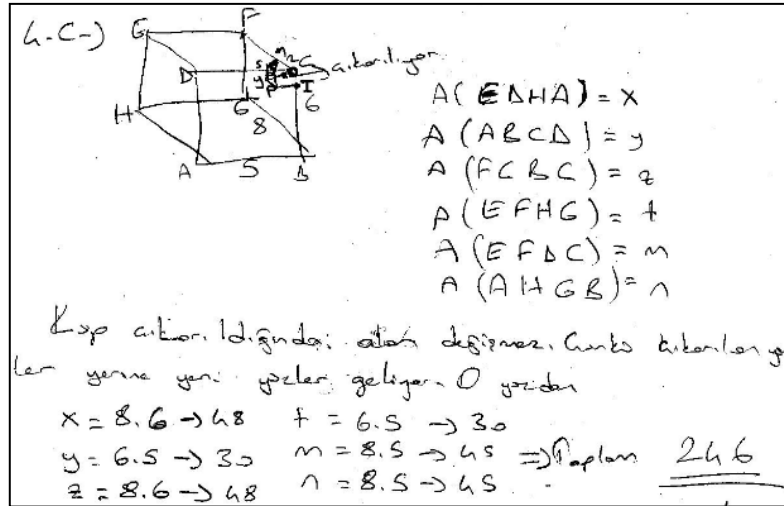 4-C-)
E F
D C çıkarılıyor
H G 6
8
A 5 B
A(EDHA) = x
A(ABCD) = y
A(FCBG) = z
A(EFHG) = t
A(EFDC) = m
A(AHGB) = n
Küp çıkarıldığında; alan değişmez. Çünkü çıkarılan yüz-
ler yerine yeni yüzler geliyor. O yüzden
x = 8.6 → 48 t = 6.5 → 30
y = 6.5 → 30 m = 8.5 → 45 ⇒ Toplam 246
z = 8.6 → 48 n = 8.5 → 45